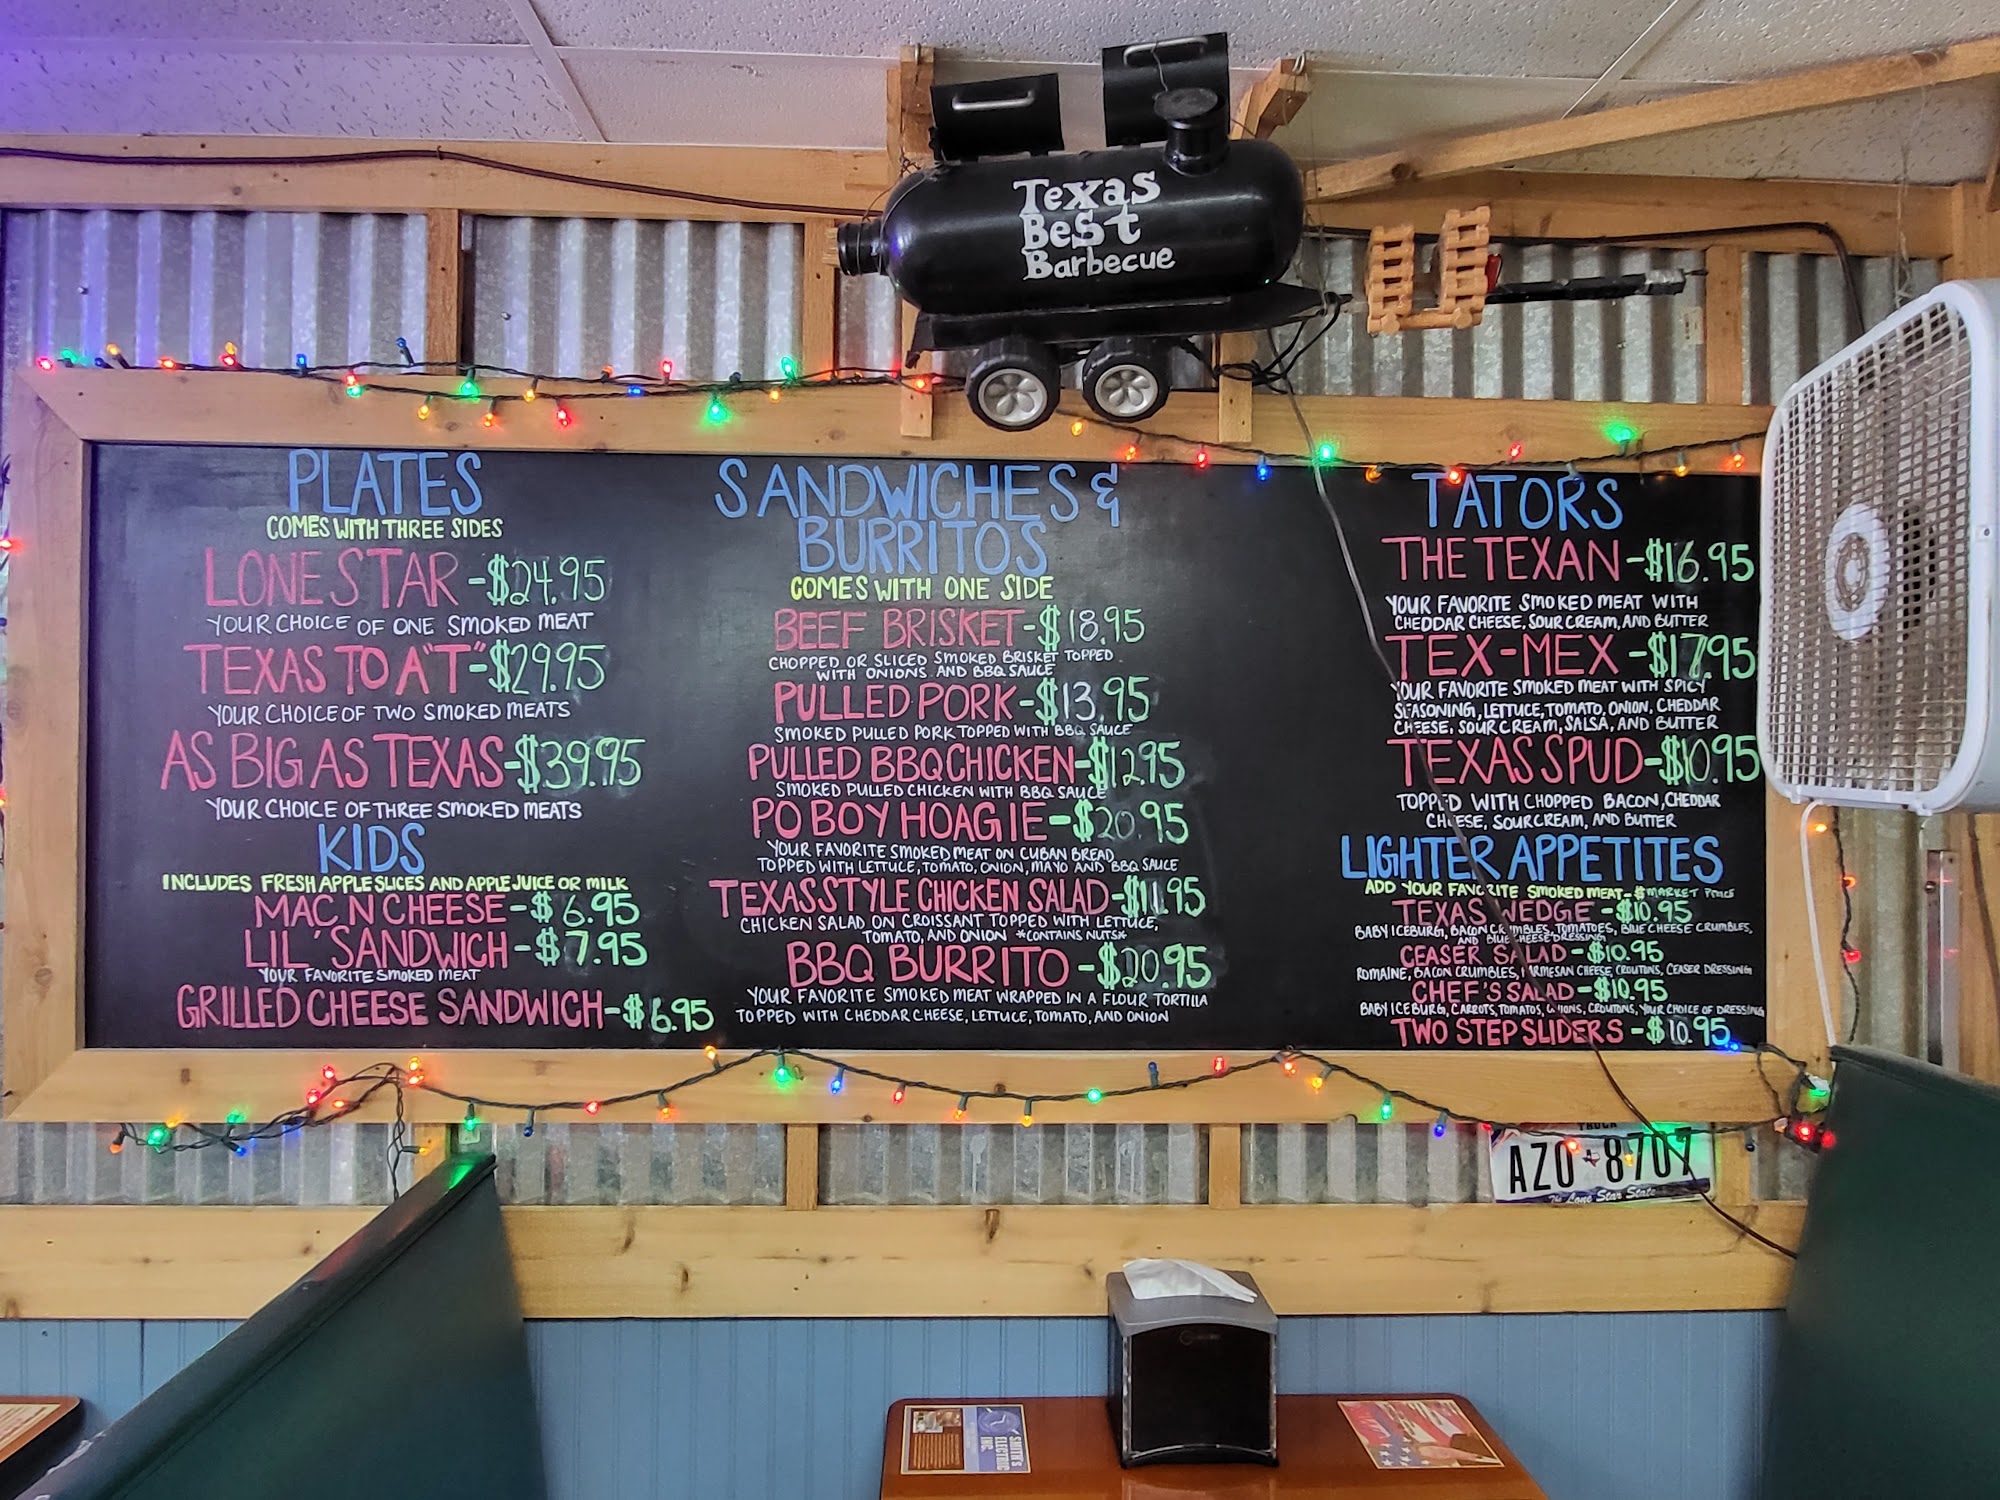 Texas
Best
Barbecue
PLATES
COMES WITH THREE SIDES
LONE STAR - $24.95
YOUR CHOICE OF ONE SMOKED MEAT
TEXAS TO A "T" - $29.95
YOUR CHOICE OF TWO SMOKED MEATS
AS BIG AS TEXAS - $39.95
YOUR CHOICE OF THREE SMOKED MEATS
KIDS
INCLUDES FRESH APPLE SLICES AND APPLE JUICE OR MILK
MAC N CHEESE - $6.95
LIL' SANDWICH - $7.95
YOUR FAVORITE SMOKED MEAT
GRILLED CHEESE SANDWICH - $6.95
SANDWICHES &
BURRITOS
COMES WITH ONE SIDE
BEEF BRISKET - $18.95
CHOPPED OR SLICED SMOKED BRISKET TOPPED
WITH ONIONS AND BBQ SAUCE
PULLED PORK - $13.95
SMOKED PULLED PORK TOPPED WITH BBQ SAUCE
PULLED BBQ CHICKEN - $12.95
SMOKED PULLED CHICKEN WITH BBQ SAUCE
PO BOY HOAGIE - $20.95
YOUR FAVORITE SMOKED MEAT ON CUBAN BREAD
TOPPED WITH LETTUCE, TOMATO, ONION, MAYO AND BBQ SAUCE
TEXAS STYLE CHICKEN SALAD - $11.95
CHICKEN SALAD ON CROISSANT TOPPED WITH LETTUCE,
TOMATO, AND ONION *CONTAINS NUTS*
BBQ BURRITO - $20.95
YOUR FAVORITE SMOKED MEAT WRAPPED IN A FLOUR TORTILLA
TOPPED WITH CHEDDAR CHEESE, LETTUCE, TOMATO, AND ONION
TATORS
THE TEXAN - $16.95
YOUR FAVORITE SMOKED MEAT WITH
CHEDDAR CHEESE, SOUR CREAM, AND BUTTER
TEX-MEX - $17.95
YOUR FAVORITE SMOKED MEAT WITH SPICY
SEASONING, LETTUCE, TOMATO, ONION, CHEDDAR
CHEESE, SOUR CREAM, SALSA, AND BUTTER
TEXAS SPUD - $10.95
TOPPED WITH CHOPPED BACON, CHEDDAR
CHEESE, SOUR CREAM, AND BUTTER
LIGHTER APPETITES
ADD YOUR FAVORITE SMOKED MEAT - $ MARKET PRICE
TEXAS WEDGE - $10.95
BABY ICEBURG, BACON CRUMBLES, TOMATOES, BLUE CHEESE CRUMBLES,
AND BLUE CHEESE DRESSING
CEASER SALAD - $10.95
ROMAINE, BACON CRUMBLES, PARMESAN CHEESE, CROUTONS, CEASER DRESSING
CHEF'S SALAD - $10.95
BABY ICEBURG, CARROTS, TOMATOS, ONIONS, CROUTONS, YOUR CHOICE OF DRESSING
TWO STEP SLIDERS - $10.95
TRUCK
AZ0 8707
The Lone Star State
SMITH'S
ELECTRIC
INC.